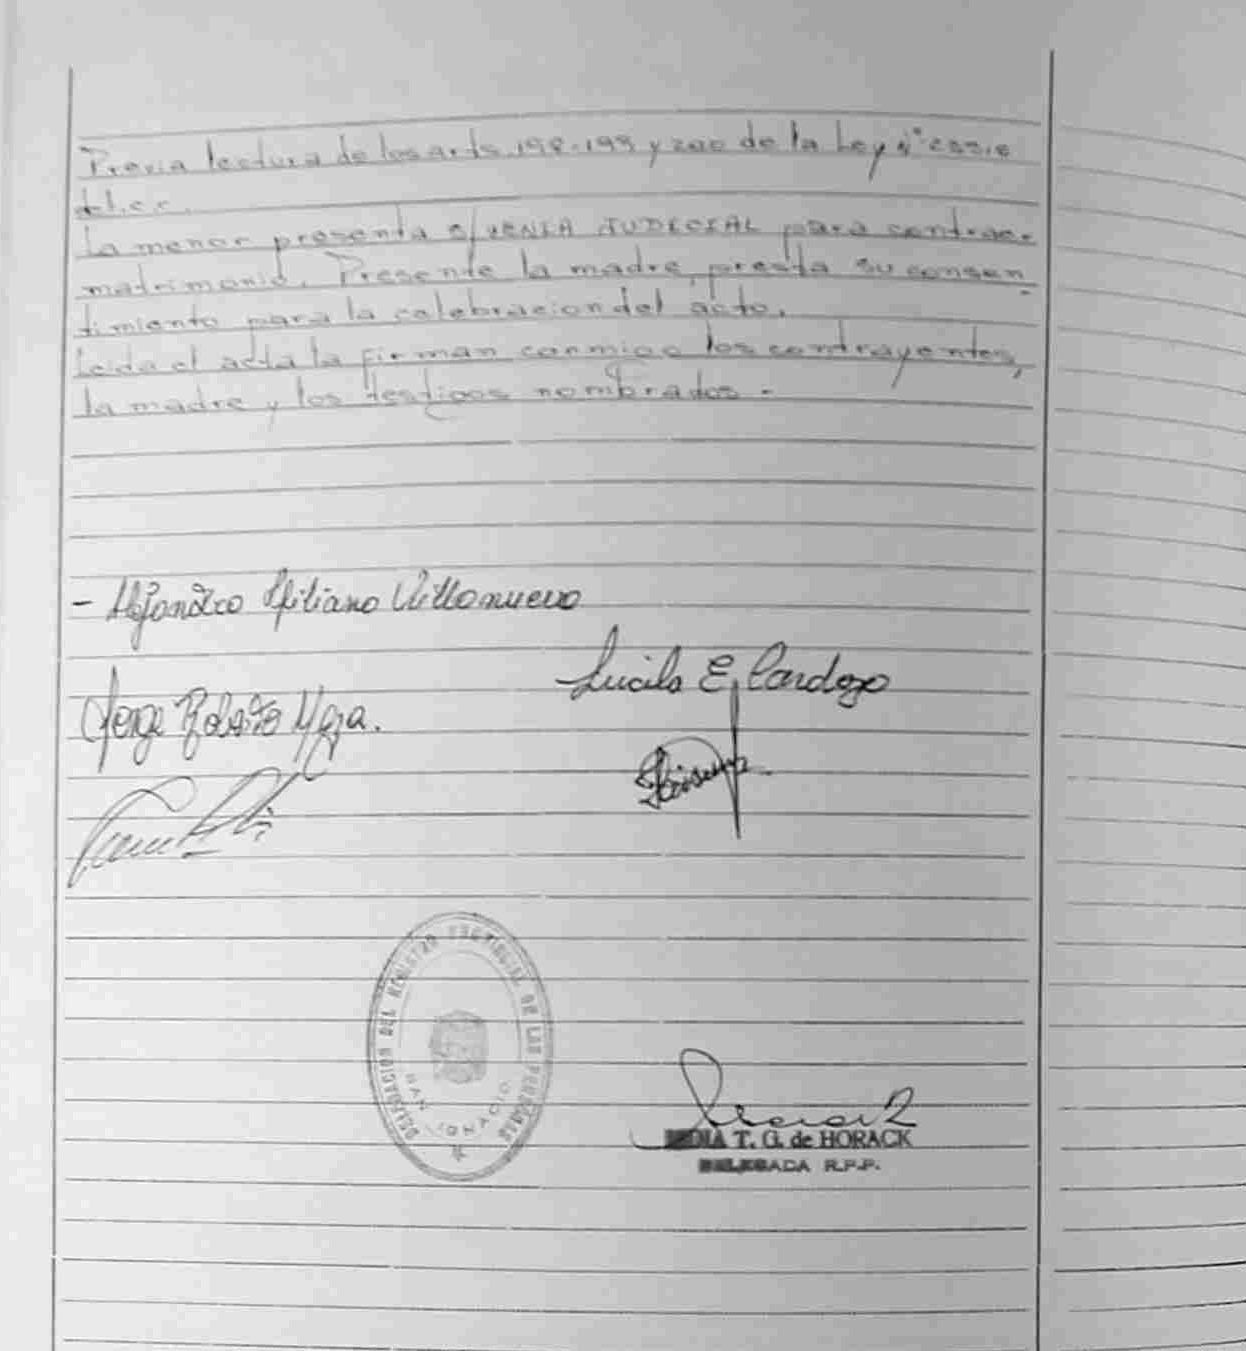 Previa lectura de los arts. 198-199 y 200 de la Ley N°
del.c.c.
La menor presenta s/VENIA JUDICIAL para contraer
matrimonio. Presente la madre, presta su consen
timiento para la celebracion del acto.
Leida el acta la firman conmigo los contrayentes,
la madre y los testigos nombrados -
- Alejandro Villanueva
Lucila E. Cardozo
Jorge Roberto
DELEGACION DEL REGISTRO PROVINCIAL DE LAS PERSONAS
SAN IGNACIO
T. G. de HORACK
DELEGADA R.P.P.